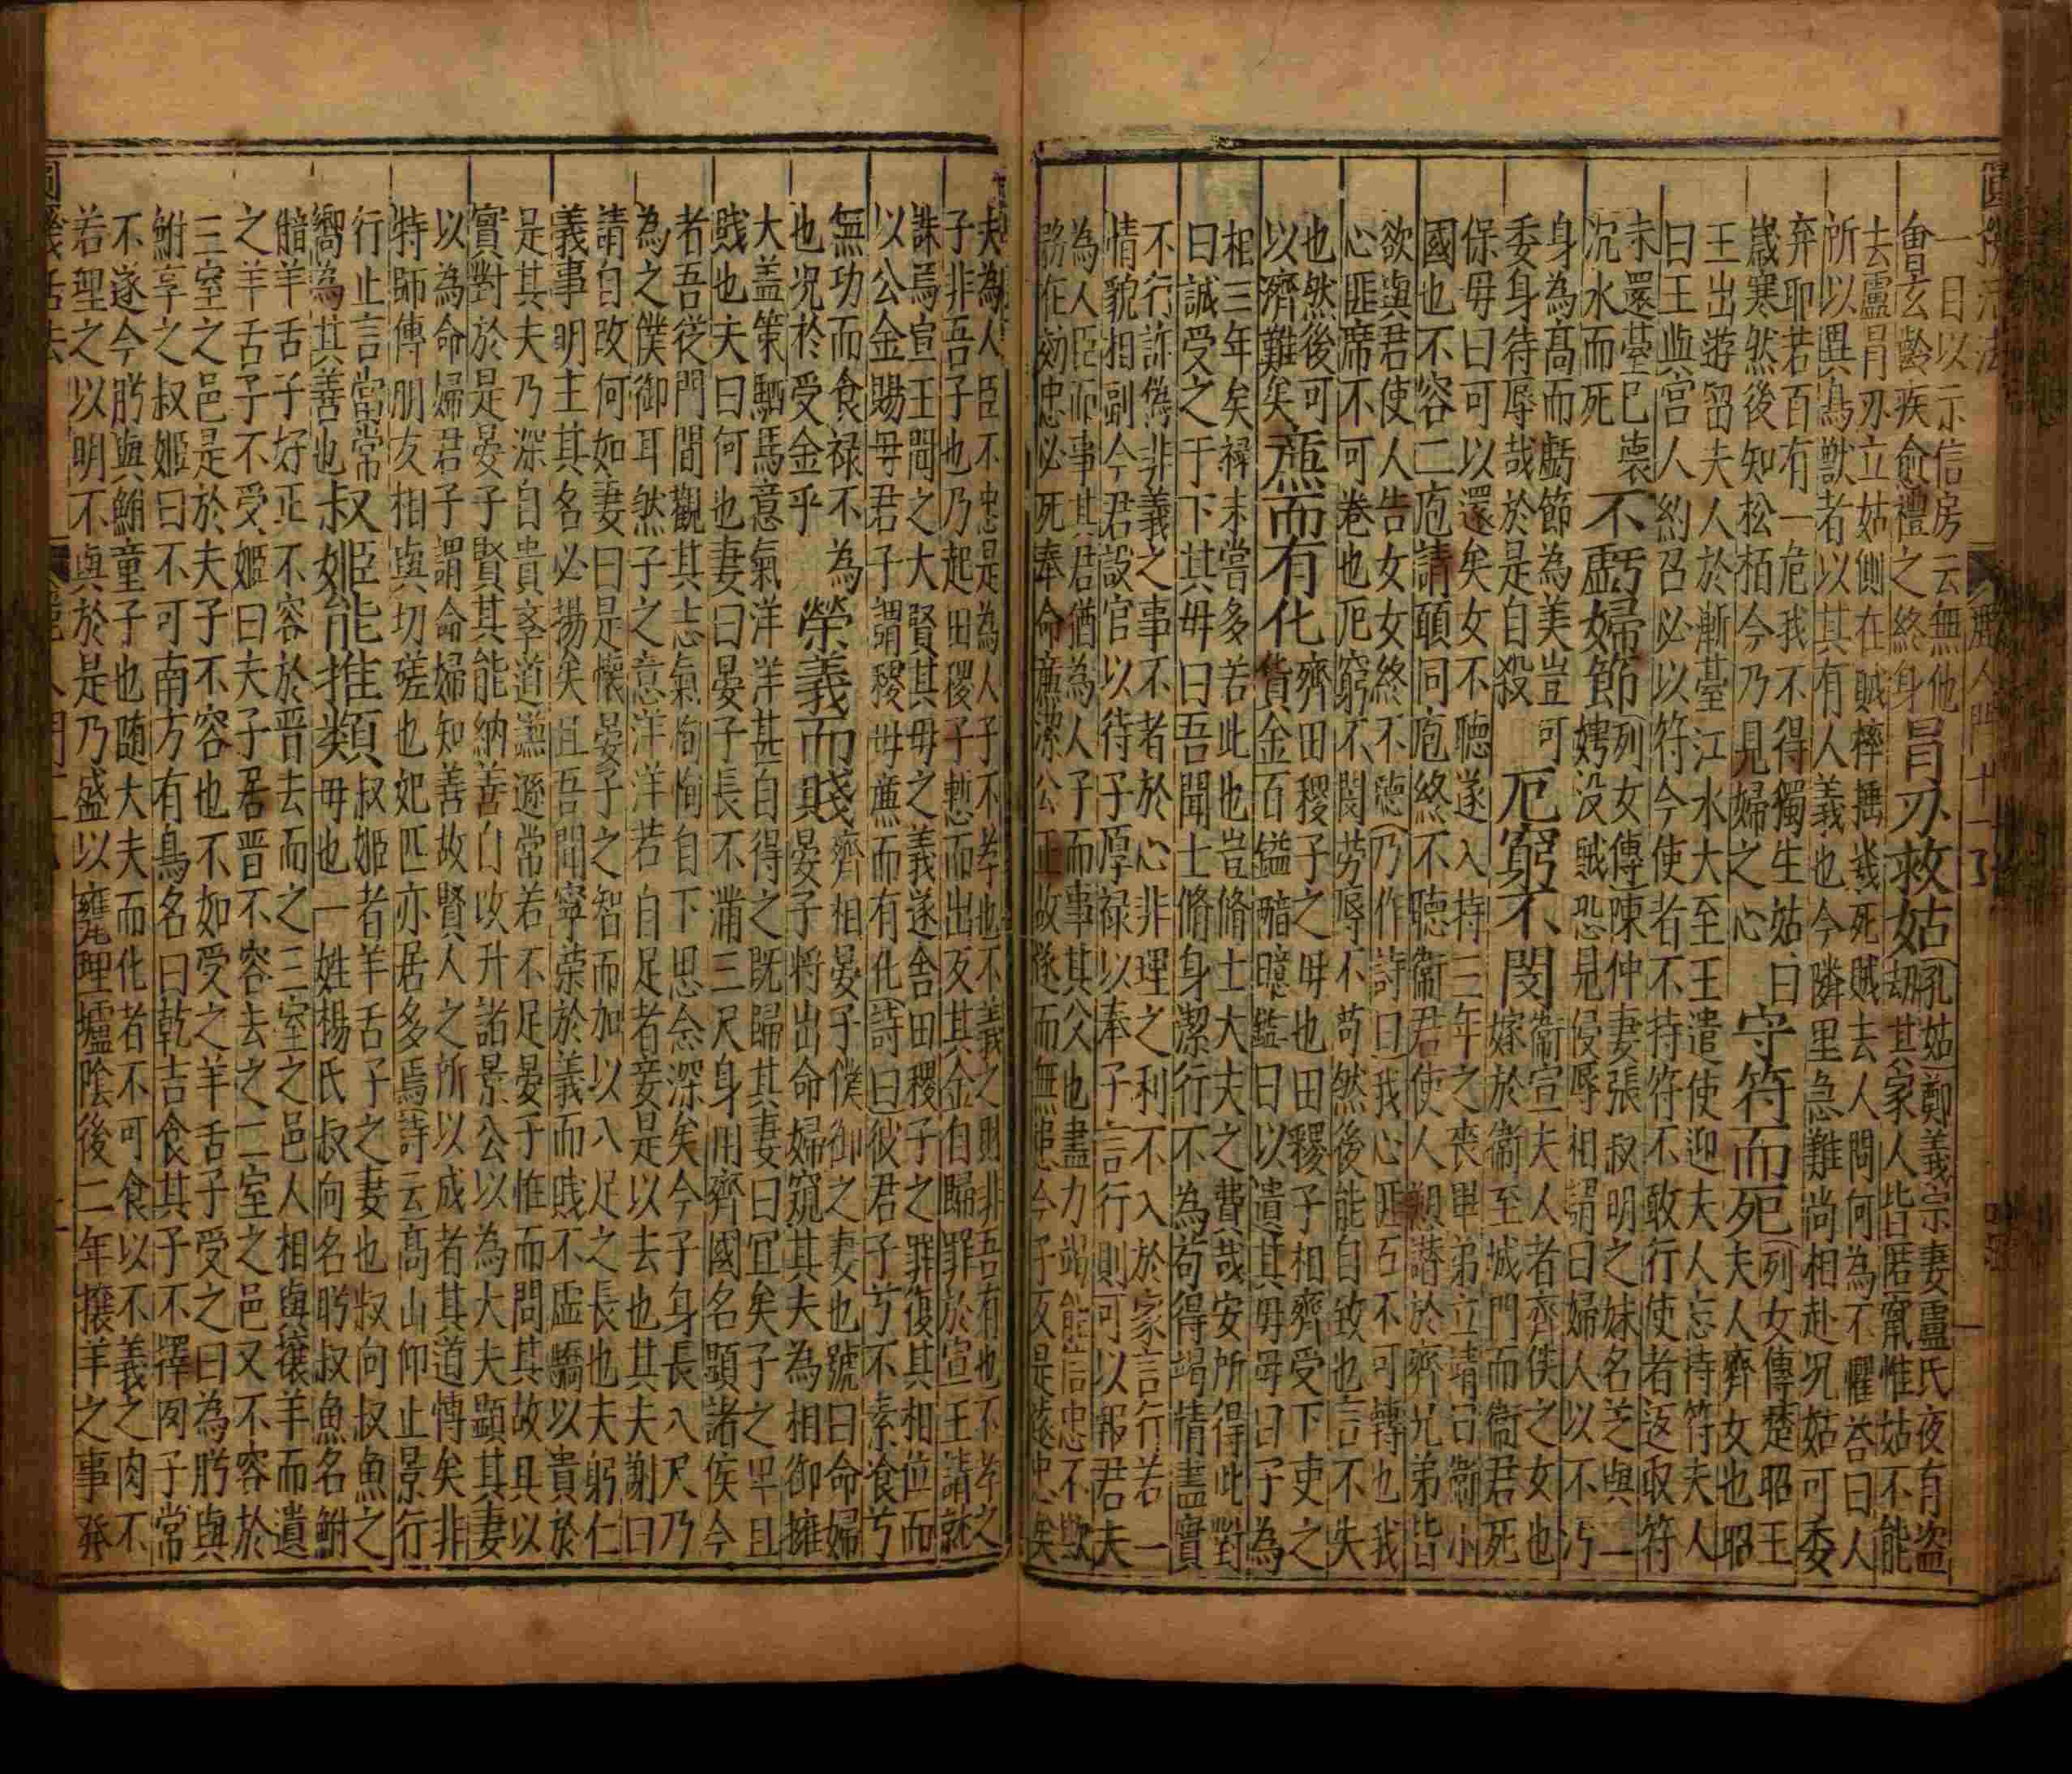 圓機活法 麗人門十一
一目以示信房云無他
會玄齡疾愈禮之終身
冒刃救姑
孔姑鄭義宗妻盧氏夜有盜
劫其家人皆匿竄惟姑不能
去盧冒刃立姑側在賊捽捶幾死賊去人問何為不懼荅曰人
所以異鳥獸者以其有人義也今隣里急難尚相赴况姑可委
弃耶若百有一危我不得獨生姑曰
歲寒然後知松栢今乃見婦之心
守符而死
列女傳楚昭王
夫人齊女也昭
王出遊留夫人於漸臺江水大至王遣使迎夫人忘持符夫人
曰王與宮人約召必以符今使者不持符不敢行使者返取符
未還臺已壞
沉水而死
不虧婦節
列女傳陳仲妻張叔明之妹名芝與一
娉没賊恐見侵辱相謂曰婦人以不汚
身為高而虧節為美豈可
委身待辱哉於是自殺
厄窮不閔
衞宣夫人者齊侯之女也
嫁於衞至城門而衞君死
保母曰可以還矣女不聽遂入持三年之喪畢弟立請曰衞小
國也不容二庖請願同庖終不聽衞君使人愬諸於齊兄弟皆
欲與君使人告女女終不聽乃作詩曰我心匪石不可轉也我
心匪席不可卷也厄窮不閔劳辱不苟然後能自致也言不失
也然後可
以濟難矣
㢘而有化
齊田稷子之母也田稷子相齊受下吏之
貨金百鎰
以遺其母母曰子為
相三年矣禄未嘗多若此也豈脩士大夫之費哉安所得此對
曰誠受之于下其母曰吾聞士脩身潔行不為苟得竭情盡實
不行詐偽非義之事不者於心非理之利不入於家言行若一
情貌相副今君設官以待子厚禄以奉子言行則可以報君夫
為人臣而事其君猶為人子而事其父也盡力竭能信忠不欺
務在効忠必死奉命㢘潔公正故遂而無患今子反是遠忠矣
夫為人臣不忠是為人子不孝也不義之財非吾有也不孝之
子非吾子也乃起田稷子慙而出反其金自歸罪於宣王請就
誅焉宣王聞之大賢其母之義遂舍田稷子之罪復其相位而
以公金賜母君子謂稷母㢘而有化詩曰彼君子兮不素飧兮
無功而食禄不為
也况於受金乎
榮義而賤
齊相晏子僕御之妻也號曰命婦
晏子將出命婦窺其夫為相御擁
大盖策駟馬意氣洋洋甚自得之既歸其妻曰宜矣子之卑且
賤也夫曰何也妻曰晏子長不滿三尺身用齊國名顯諸侯今
者吾從門間觀其志氣恂恂自下思念深矣今子身長八尺乃
為之僕御耳然子之意洋洋若自足者妾是以去也其夫謝曰
請自改何如妻曰是懷晏子之智而加以八尺之長也夫躬仁
義事明主其名必揚矣且吾聞寧荣於義而賤不虛驕以貴於
是其夫乃深自貴孝道謙遜常若不足晏子惟而問其故具以
實對於是晏子賢其能納善自改升諸景公以為大夫顯其妻
以為命婦君子謂命婦知善故賢人之所以成者其道愽矣非
特師傳朋友相與切磋也妃匹亦居多焉詩云高山仰止景行
行止言當常
嚮為其善也
叔姬能推類
叔姬者羊舌子之妻也叔向叔魚之
母也一姓楊氏叔向名肸叔魚名鮒
䣺羊舌子好正不容於晋去而之三室之邑人相與攘羊而遺
之羊舌子不受姬曰夫子居晋不容去之二室之邑又不容於
三室之邑是於夫子不容也不如受之羊舌子受之曰為肸與
鮒享之叔姬曰不可南方有鳥名曰乾吉食其子不擇肉子常
不遂今肸與鮒童子也随大夫而化者不可食以不義之肉不
若埋之以明不與於是乃盛以甕埋壚陰後二年攘羊之事發
圓機活法